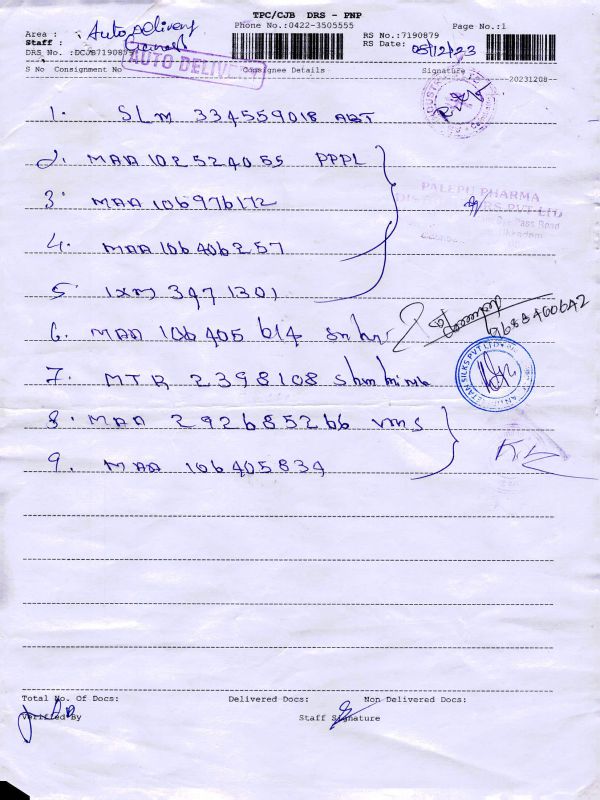 TPC/CJB DRS - PNP
Phone No.:0422-3505555 Page No.:1
Area : Auto Delivery
Staff : RS No.:7190879
DRS No. :DCJB7190879 RS Date: 05/12/23
AUTO DELIVERY
S No Consignment No Consignee Details Signature
--20231208--
1. SLM 334559018 ABT
2. MAA 102524055 PPPL
3. MAA 106976172
PALEPU PHARMA
PVT LTD
4. MAA 106406257
5. IXM 3471301
6. MAA 106405614
9688460642
7. MTR 2398108
SILKS PVT LTD
8. MAA 292685266 VMS
9. MAA 106405834
Total No. Of Docs: Delivered Docs: Non Delivered Docs:
Verified By Staff Signature